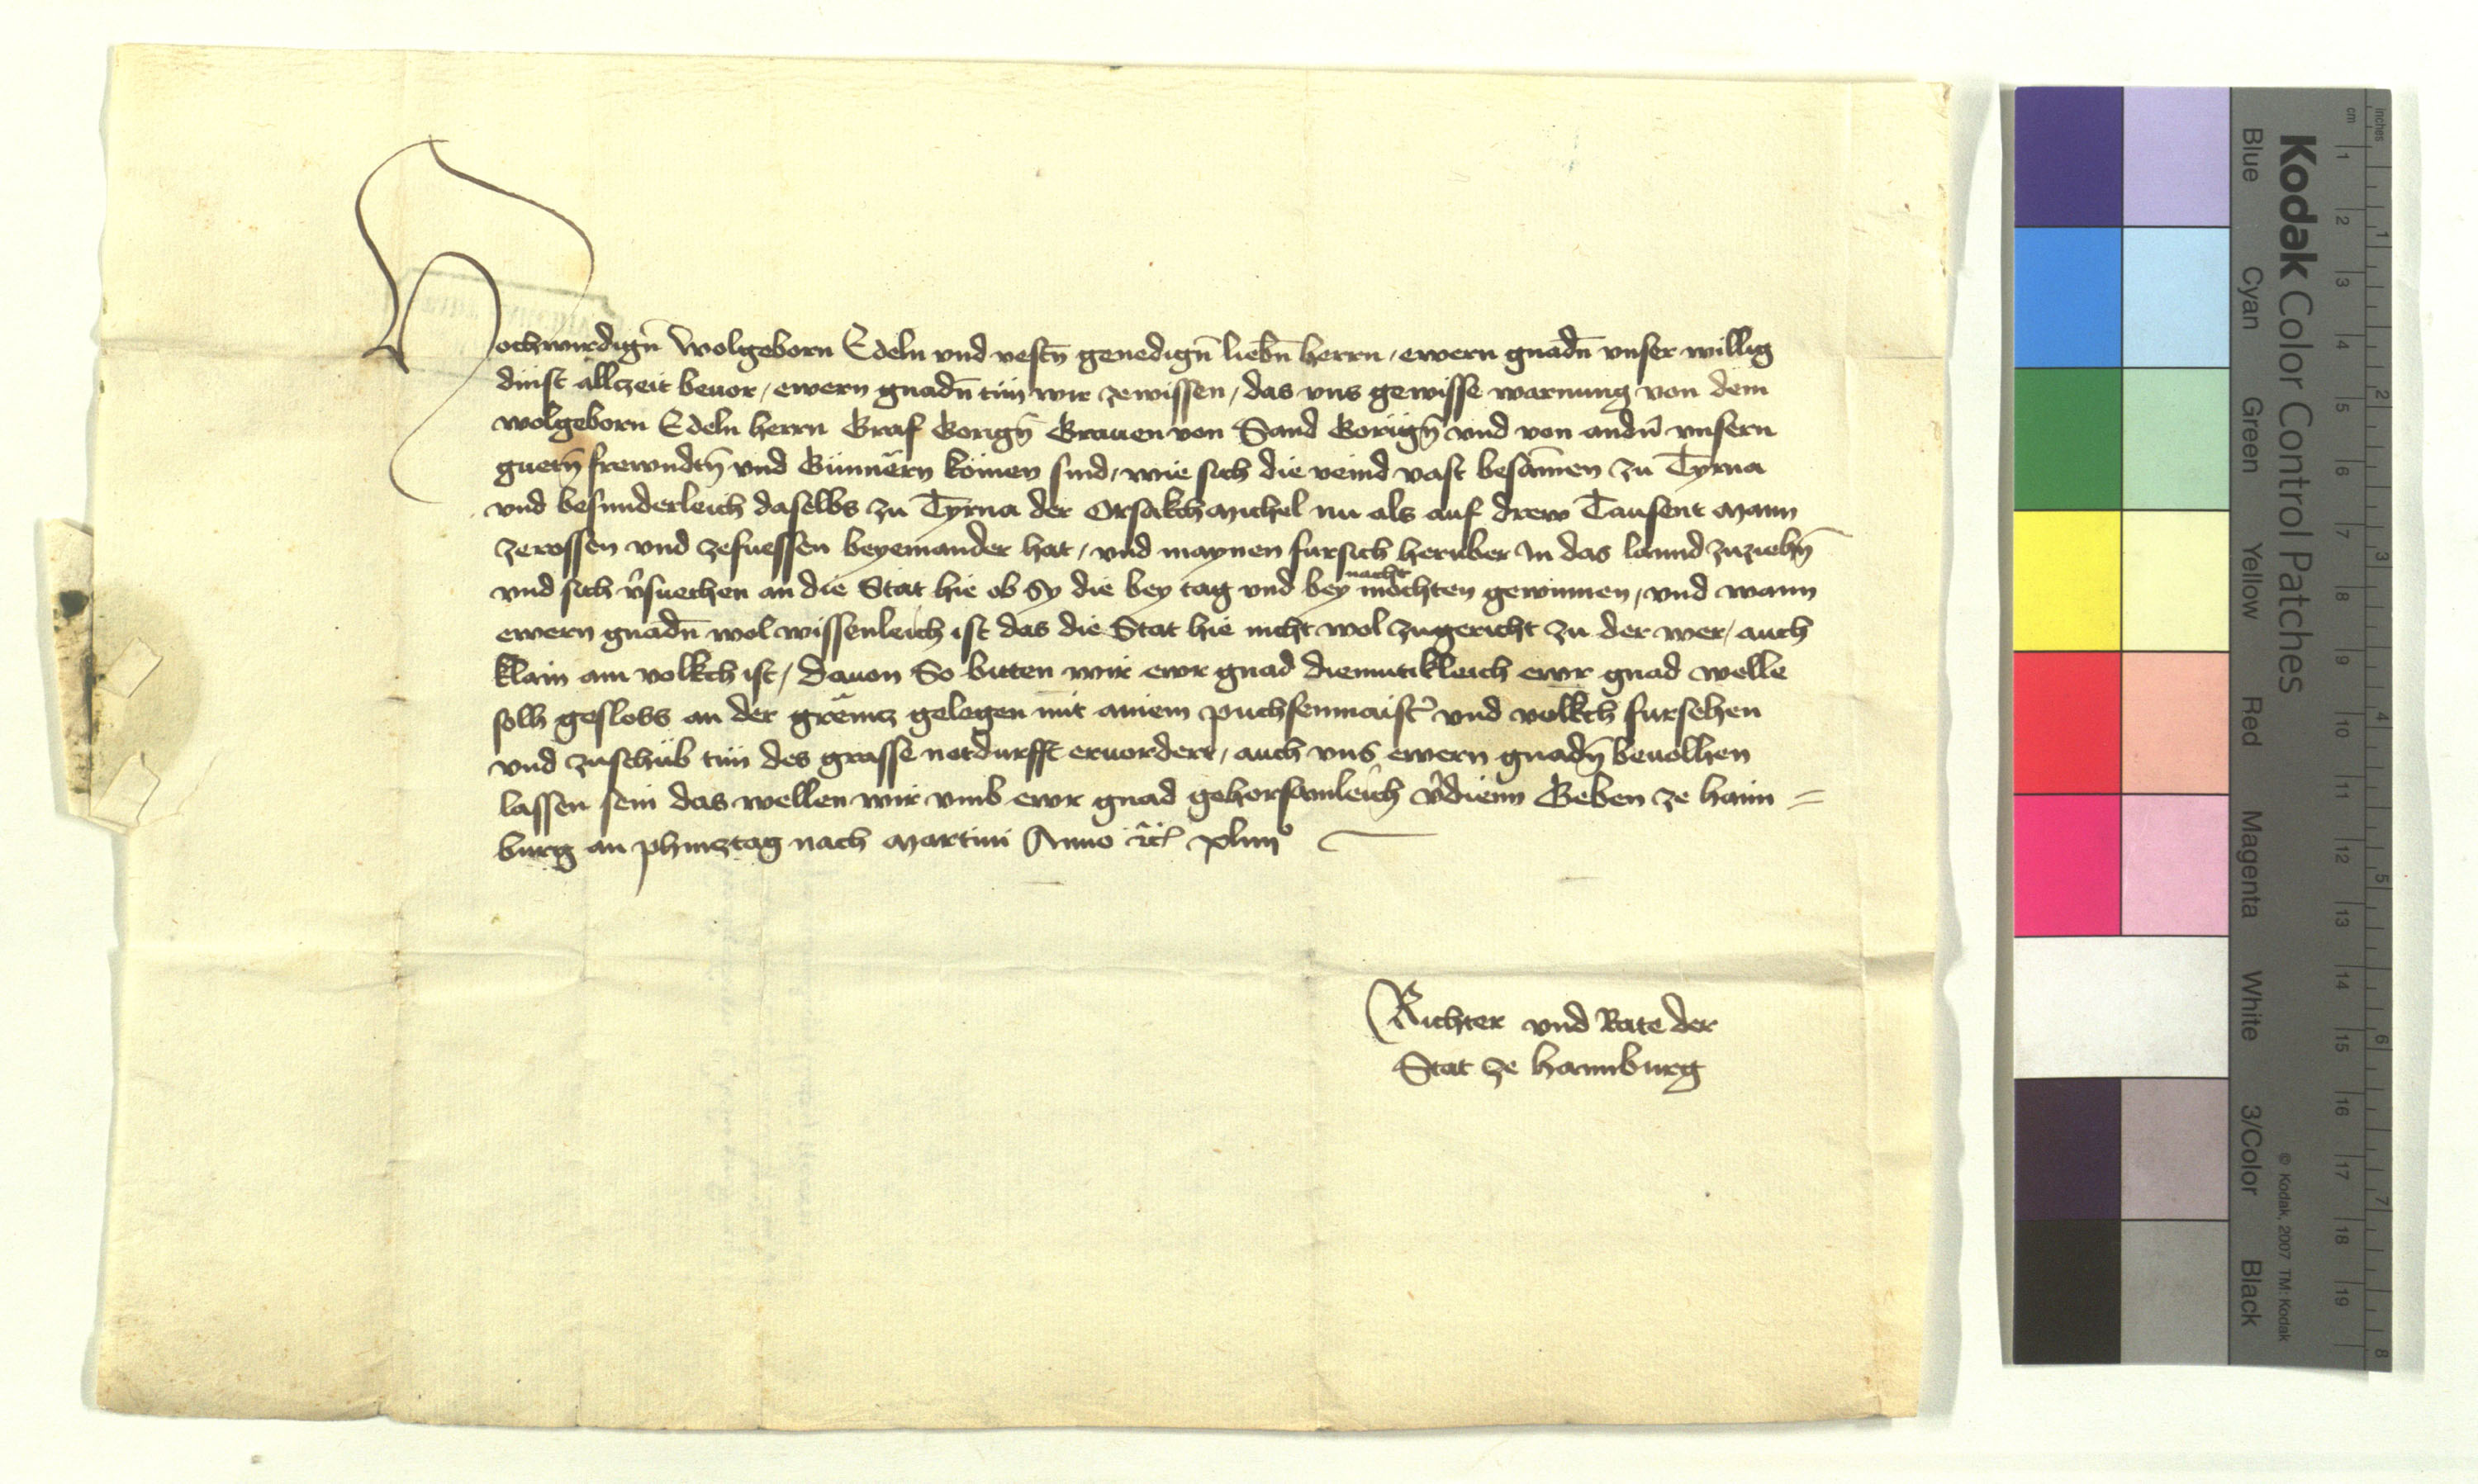 Hochwirdign̄ Wolgeborn Edeln vnd vestn̄ genedign̄ liebn̄ herrn / ewern gnadn̄ vnser willig
dinst allczeit beuor / ewern gnadn̄ tün wir zewissen / das vns gewisse warnung von dem
wolgeborn Edeln herrn Graf Gorign̄ Grauen von Sand Gorign̄ vnd von andn̄ vnsern
guetn̄ frewndtn̄ vnd Günnern kömen sind / wie sich die veind vast besāmen zu Tyrna
vnd besunderleich daselbs zu Tyrna der Orsakch Michel nu als auf drew Tausent Mann
zerossen vnd zefuessen beyeinander hat / vnd maynen fursich heruber In das lannd zuziehn̄
vnd sich v̉suechen an die Stat hie ob Sy die bey tag vnd bey nacht mochten gewinnen / vnd wann
ewern gnadn̄ wol wissenleich ist das die Stat hie nicht wol zugericht zu der wer / auch
klain am volkch ist / Dauon So bitten wir ewr gnad diemutikleich ewr gnad welle
solh gesloss an der gremcz gelegen mit ainem puchsenmaist̉ vnd volkch fursehen
vnd zuschüb tün des grasse notdurfft eruordert / auch vns ewern gnadn̄ beuolhen
lassen sein das wellen wir vmb ewr gnad gehorsamleich v̉dienn Geben ze haim =
burg an phincztag nach Martini Anno ꝛc̄ xliiiiº
Richter vnd Rate der
Stat ze Haimburg
Kodak Color Control Patches
Blue Cyan Green Yellow Red Magenta White 3/Color Black
© Kodak, 2007 TM: Kodak
cm 1 2 3 4 5 6 7 8 9 10 11 12 13 14 15 16 17 18 19
inches 1 2 3 4 5 6 7 8